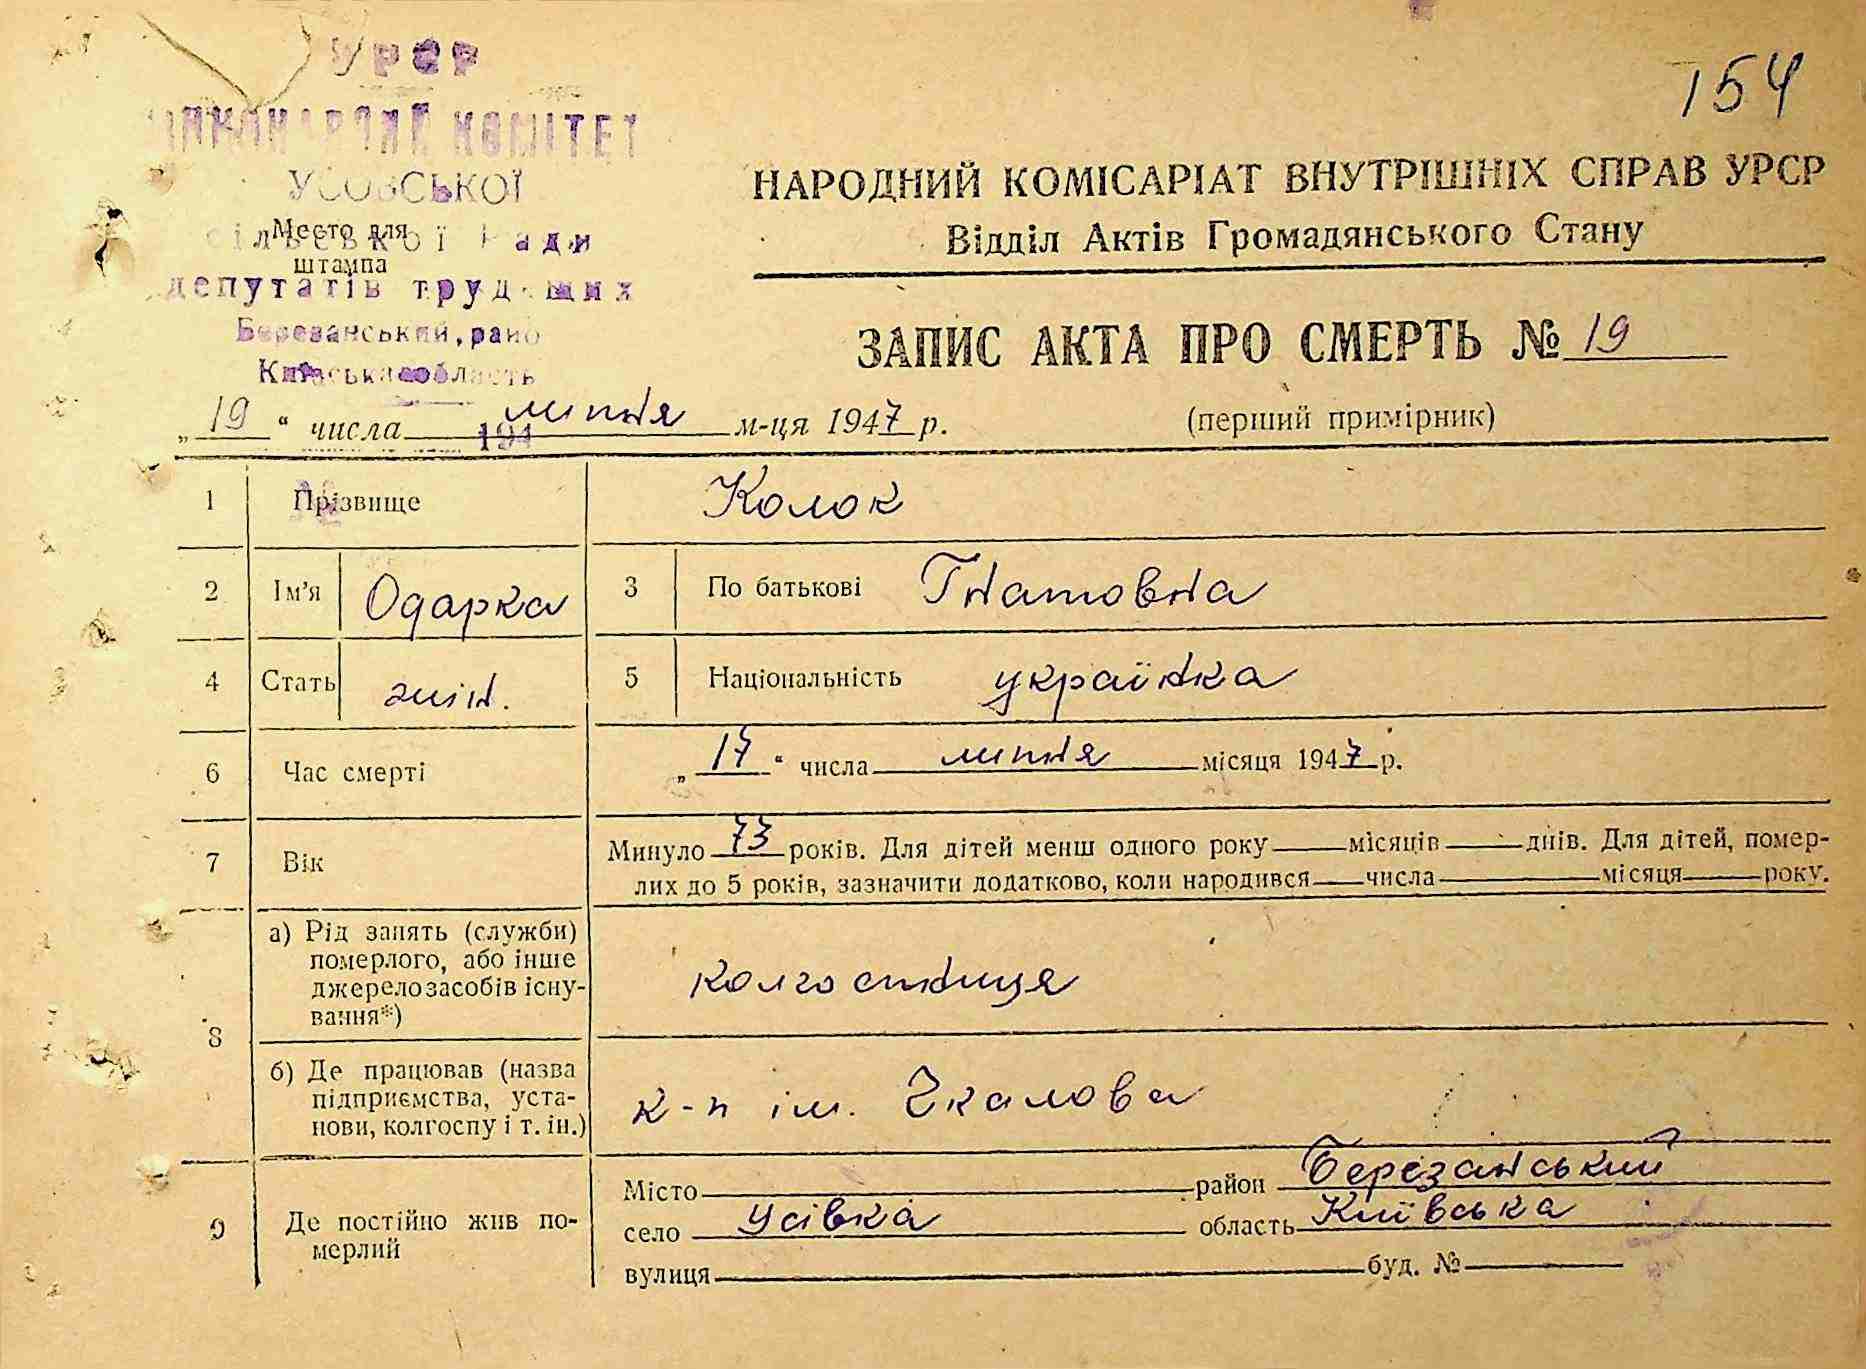 154
УРСР
КОМІТЕТ
УСОВСЬКОЇ
Место для
сільської Ради
штампа
депутатів трудящих
Березанський, райо
Київська область
НАРОДНИЙ КОМІСАРІАТ ВНУТРІШНІХ СПРАВ УРСР
Відділ Актів Громадянського Стану
ЗАПИС АКТА ПРО СМЕРТЬ № 19
„19“ числа липня м-ця 1947 р.
194
(перший примірник)
1 Прізвище Колок
2 Ім’я Одарка 3 По батькові Гнатовна
4 Стать жін. 5 Національність українка
6 Час смерті „17“ числа липня місяця 1947 р.
7 Вік Минуло 73 років. Для дітей менш одного року місяців днів. Для дітей, помер-
лих до 5 років, зазначити додатково, коли народився числа місяця року.
8
а) Рід занять (служби)
померлого, або інше
джерело засобів існу-
вання*)
колгоспниця
б) Де працював (назва
підприємства, уста-
нови, колгоспу і т. ін.)
к-п ім. Чкалова
9 Де постійно жив по-
мерлий
Місто район Березанський
село Усівка область Київська
вулиця буд. №